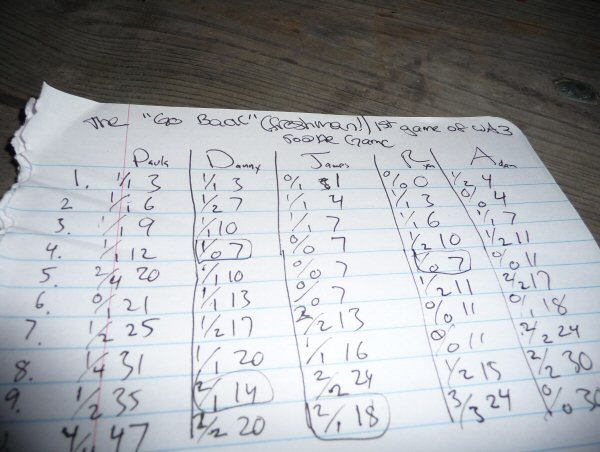 The "Go Back" (freshman!) 1st game of WA3
Game
Paula Danny James Ryan Adam
1. 1/1 3 1/1 3 0/1 1 0/0 0 1/2 4
2 1/1 6 1/2 7 1/1 4 1/1 3 0/0 4
3. 1/1 9 1/1 10 1/1 7 1/1 6 1/1 7
4. 1/1 12 1/0 7 0/0 7 1/2 10 1/2 11
5. 2/4 20 1/1 10 0/0 7 1/0 7 0/0 11
6. 0/1 21 1/1 13 0/0 7 1/2 11 2/2 17
7. 1/2 25 1/2 17 2/2 13 0/0 11 0/1 18
8. 1/4 31 1/1 20 1/1 16 0/0 11 2/2 24
9. 1/2 35 2/1 14 2/2 24 1/2 15 2/2 30
4/4 47 2/2 20 2/1 18 3/3 24 0/0 30